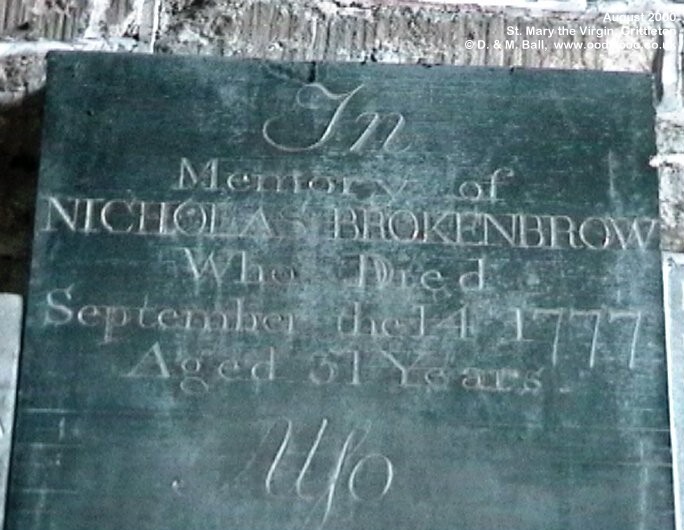 August 2000
St. Mary the Virgin, Grittleton
© D. & M. Ball, www.oodwooc.co.uk
In
Memory of
NICHOLAS BROKENBROW
Who Died
September the 14 1777
Aged 51 Years
Also